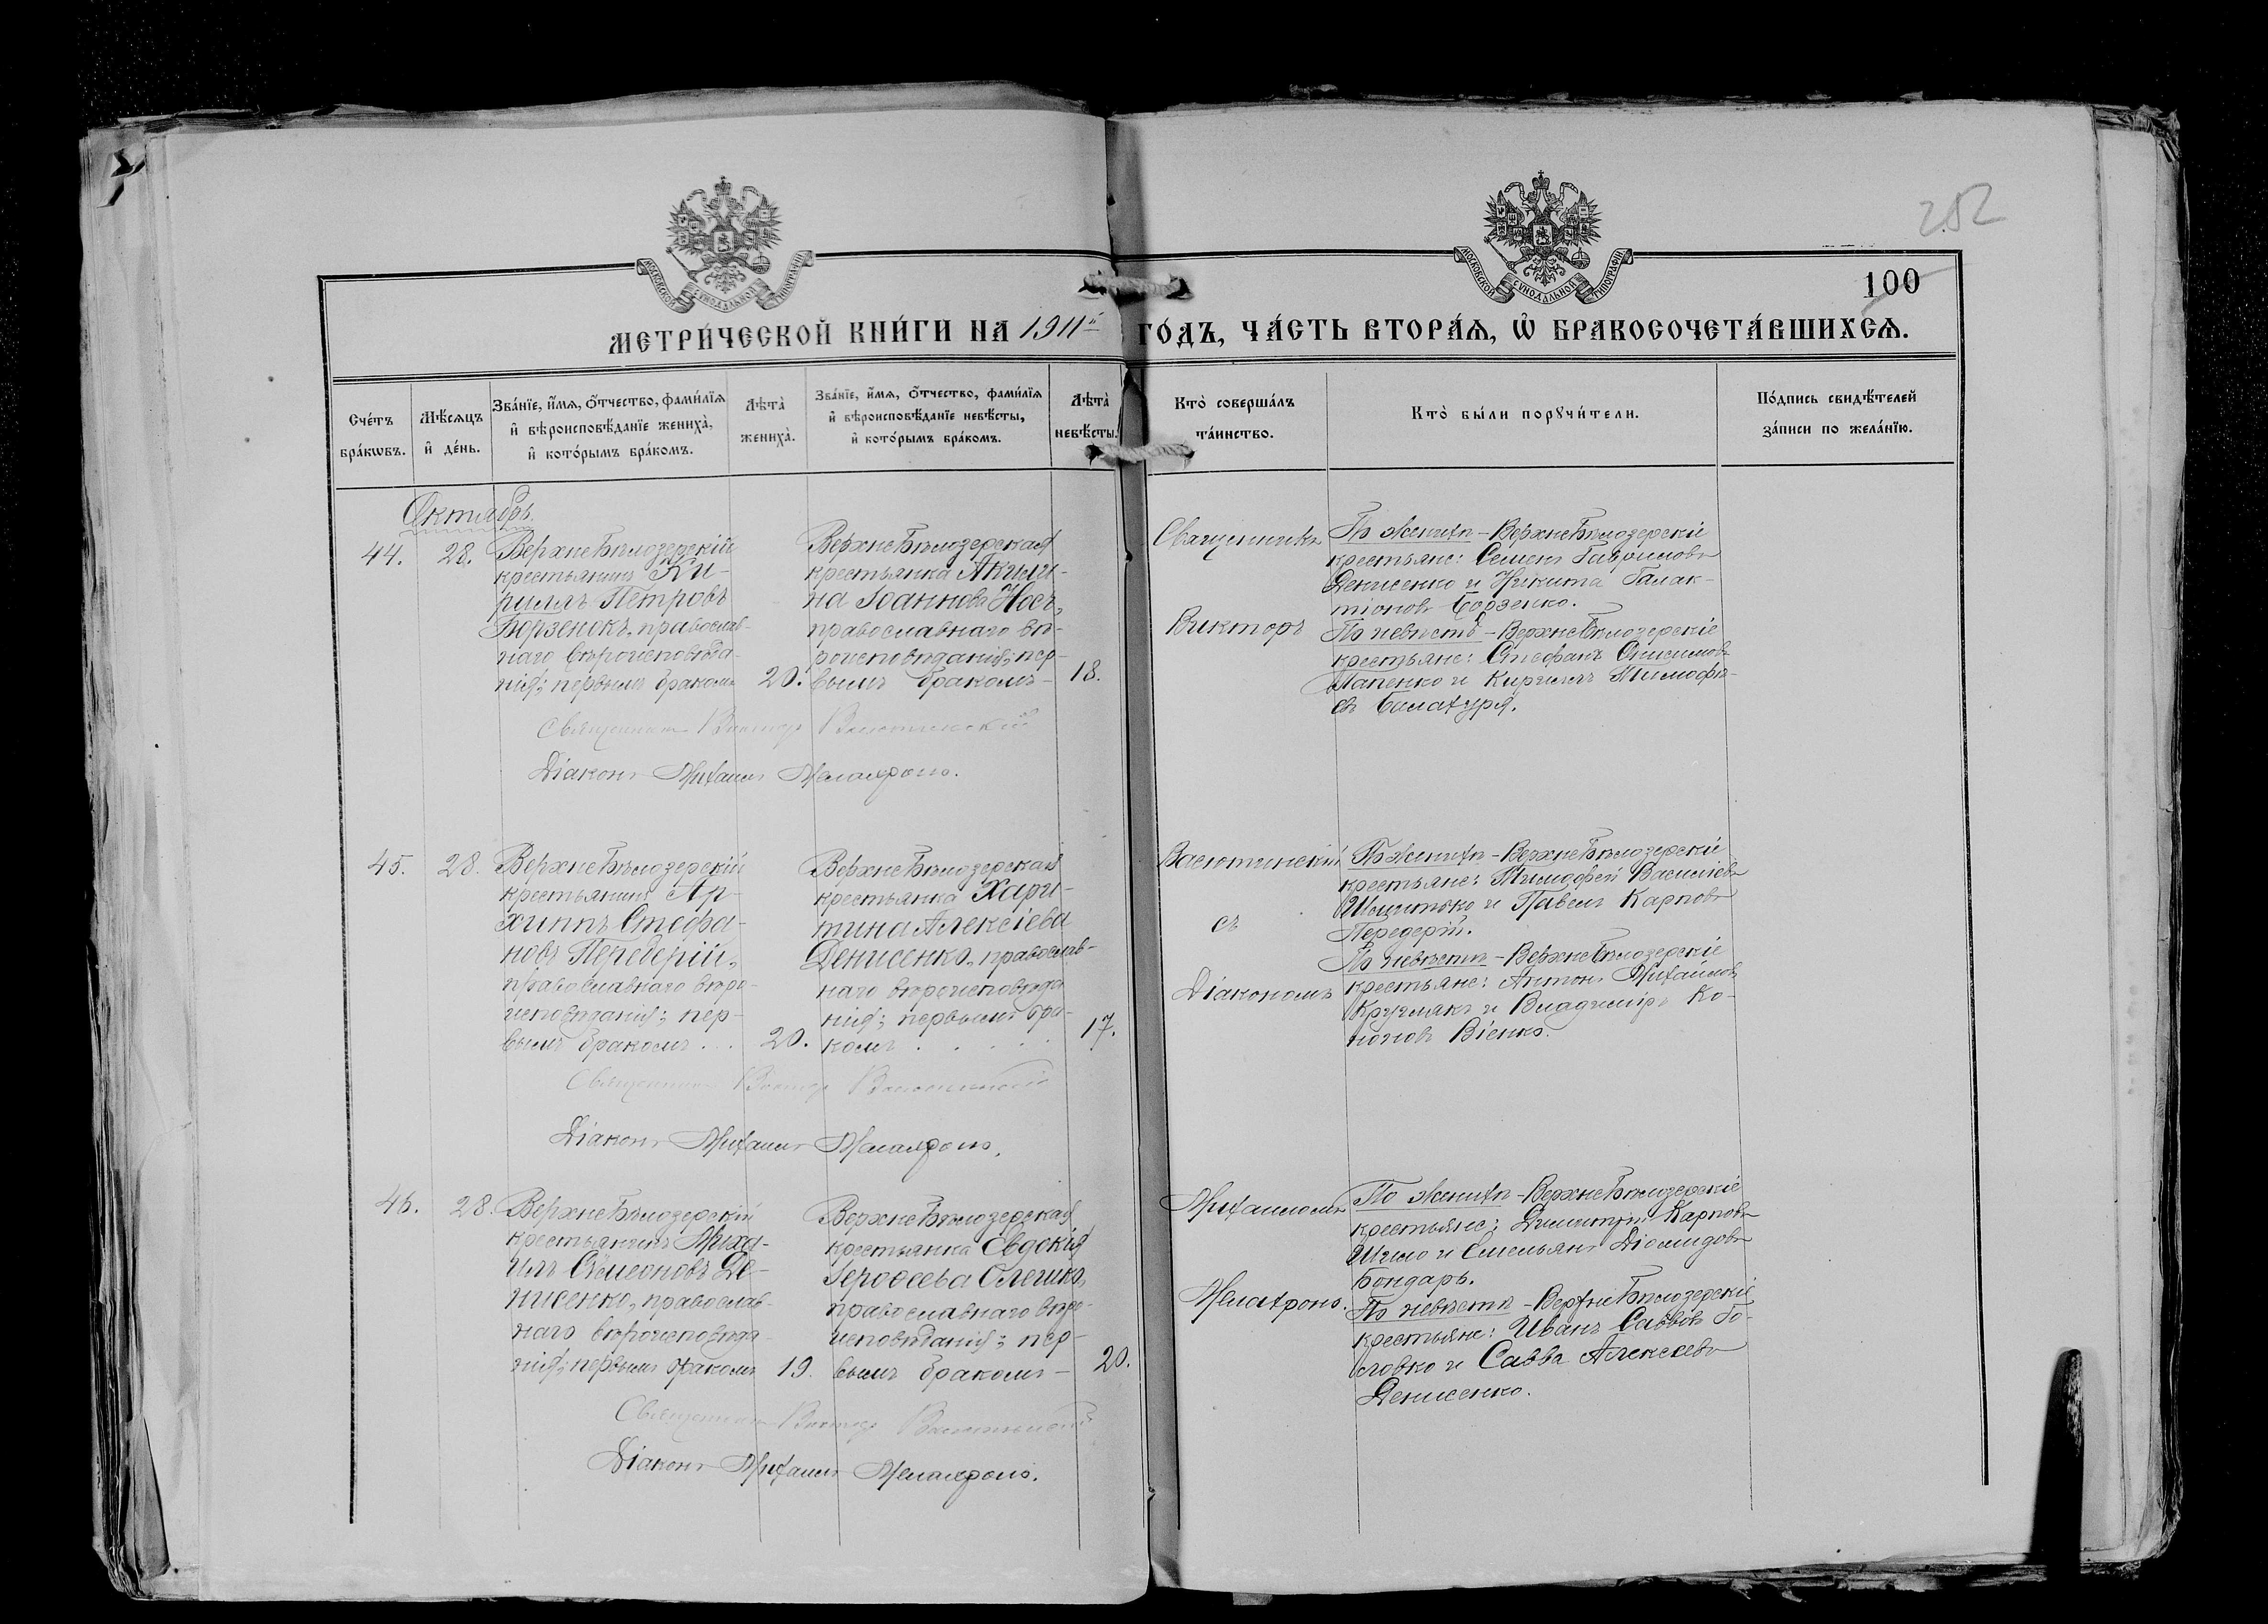 252
100
МОСКОВСКОЙ СѴНОДАЛЬНОЙ ТИПОГРАФІИ
МОСКОВСКОЙ СѴНОДАЛЬНОЙ ТИПОГРАФІИ
МЕТРИ́ЧЕСКОЙ КНИ́ГИ НА 1911й ГО́ДЪ, ЧА́СТЬ ВТОРА́Ѧ, Ѡ҆ БРАКОСОЧЕТА́ВШИХСѦ.
Сче́тъ
бра́кѡвъ.
Мѣ́сѧцъ
и҆ де́нь.
Зва́нїе, и҆́мѧ, ѻ҆́тчество, фами́лїѧ
и҆ вѣроисповѣ́данїе жениха̀,
и҆ кото́рымъ бра́комъ.
Лѣта̀
жениха̀.
Зва́нїе, и҆́мѧ, ѻ҆́тчество, фами́лїѧ
и҆ вѣроисповѣ́данїе невѣ́сты,
и҆ кото́рымъ бра́комъ.
Лѣта̀
невѣ́сты.
Кто̀ соверша́лъ
та́инство.
Кто̀ бы́ли порꙋчи́тели.
По́дпись свидѣ́телей
за́писи по жела́нїю.
Октябрь.
44.
28.
ВерхнеБѣлозерскій
крестьянинъ Ки-
риллъ Петровъ
Борзенокъ, православ-
наго вѣроисповѣда-
нія; первымъ бракомъ
20.
ВерхнеБѣлозерская
крестьянка Акили-
на Іоаннова Носъ,
православнаго вѣ-
роисповѣданія; пер-
вымъ бракомъ-
18.
Священникъ Викторъ Васютинскій
Діаконъ Михаилъ
Священникъ
Викторъ
По женихѣ - ВерхнеБѣлозерскіе
крестьяне: Семенъ Гавриловъ
Денисенко и Никита Галак-
тіоновъ Борзенко.
По невѣстѣ - ВерхнеБѣлозерскіе
крестьяне: Стефанъ Онисимовъ
Папенко и Кириллъ Тимофѣ-
евъ Балахуря.
45.
28.
ВерхнеБѣлозерскій
крестьянинъ Ар-
хиппъ Стефа-
новъ Передерій,
православнаго вѣро-
исповѣданія; пер-
вымъ бракомъ . .
20.
ВерхнеБѣлозерская
крестьянка Хари-
тина Алексіева
Денисенко, православ-
наго вѣроисповѣда
нія; первымъ бра-
комъ . . . . .
17.
Священникъ Викторъ Васютинскій
Діаконъ Михаилъ
Васютинскій
съ
Діакономъ
По женихѣ - ВерхнеБѣлозерскіе
крестьяне: Тимофей Васильевъ
и Павелъ Карповъ
Передерій.
По невѣстѣ - ВерхнеБѣлозерскіе
крестьяне: Антонъ Михайловъ
Кругликъ и Владиміръ Ко-
ноновъ Віенко.
46.
28.
ВерхнеБѣлозерскій
крестьянинъ Миха-
илъ Симеоновъ Де-
нисенко, православ-
наго вѣроисповѣда-
нія; первымъ бракомъ
19.
ВерхнеБѣлозерская
крестьянка Евдокія
Іероѳеева Олешко,
православнаго вѣро-
исповѣданія; пер-
вымъ бракомъ -
20.
Священникъ Викторъ Васютинскій
Діаконъ Михаилъ
Михаиломъ
По женихѣ - ВерхнеБѣлозерскіе
крестьяне: Димитрій Карповъ
Шило и Емельянъ Діомидовъ
Бондарь.
По невѣстѣ - ВерхнеБѣлозерскіе
крестьяне: Иванъ Саввовъ Го-
ловко и Савва Алексеевъ
Денисенко.